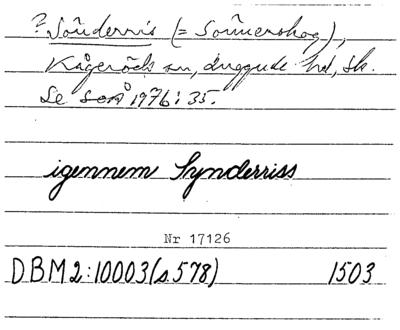 ? Sönderris (= Sönnerskog),
Kågeröds sn, Luggude hd, Sk.
Se SOÅ 1976: 35.
igennem Synderriss
Nr 17126
DBM 2:10003 (s. 578) 1503